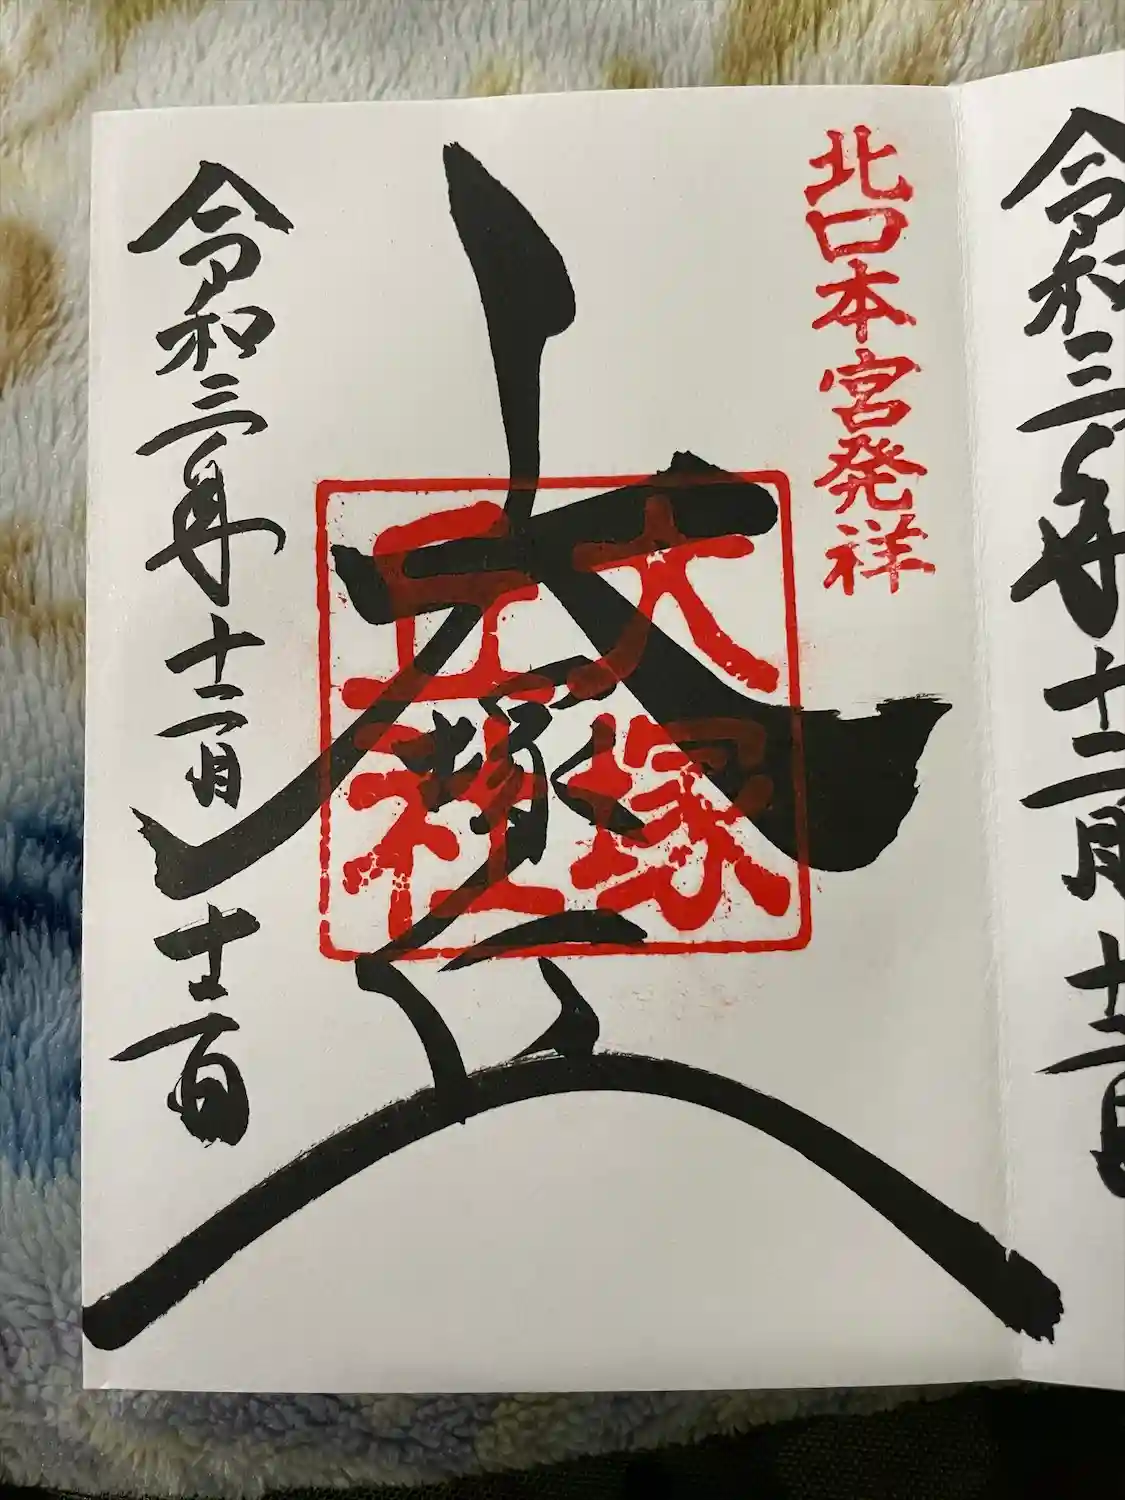 北口本宮発祥
大塚
丘社
令和三年十二月十二日
令和三年十二月十二日